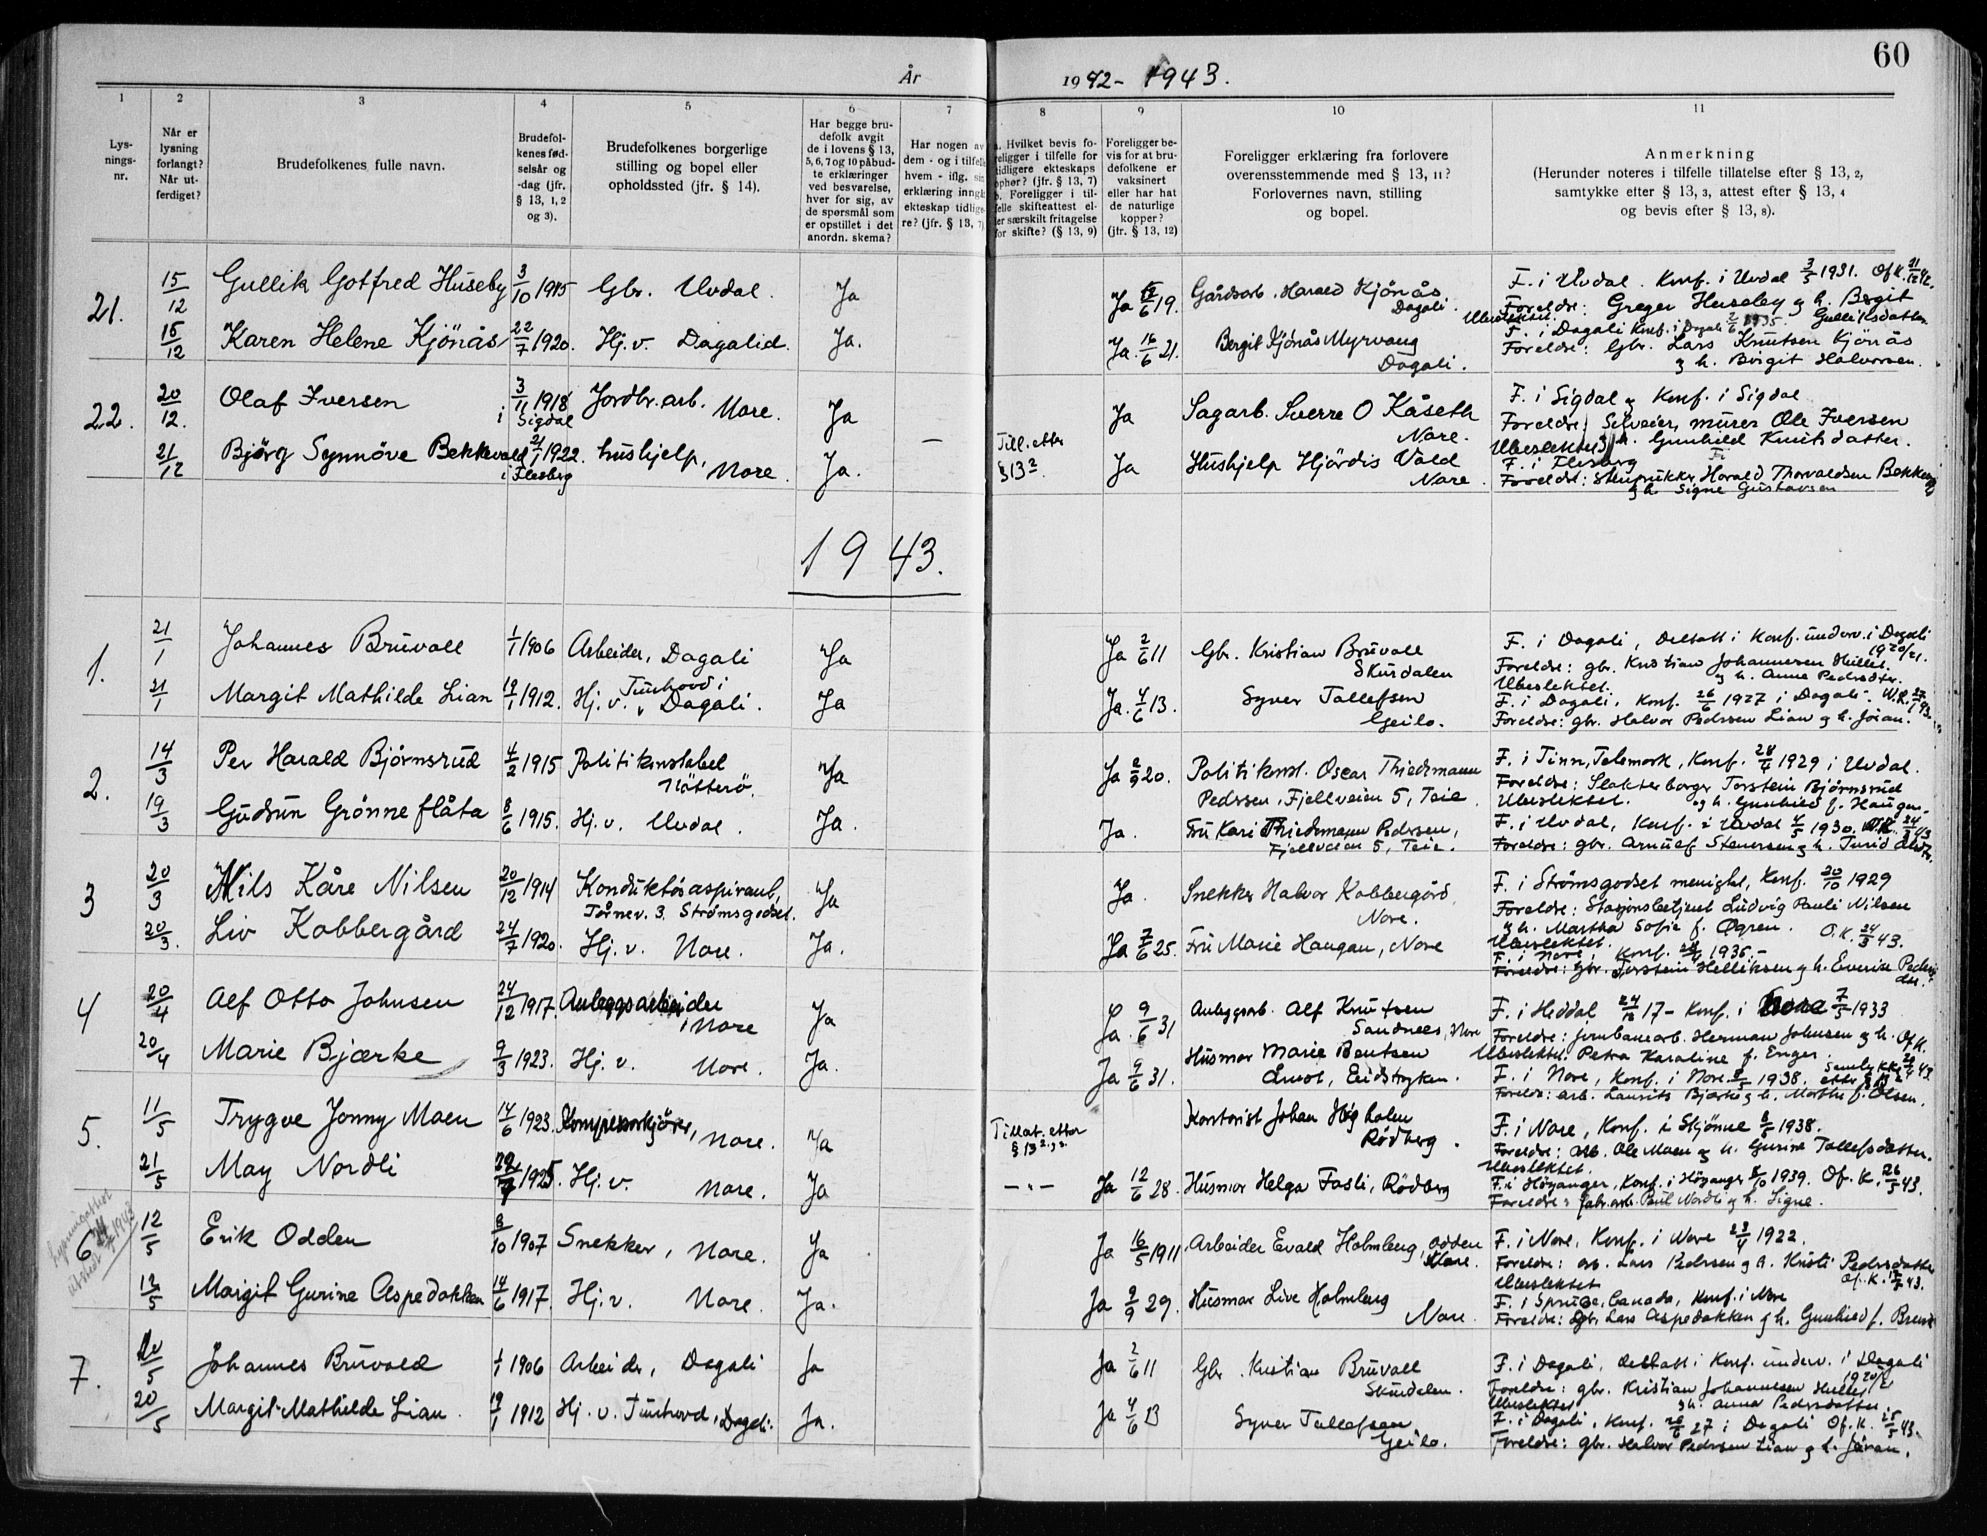 60
År
1942 - 1943.
1
2
3
4
5
6
7
8
9
10
11
Lys-
nings-
nr.
Når er
lysning
forlangt?
Når ut-
ferdiget?
Brudefolkenes fulle navn.
Brudefol-
kenes fød-
selsår og
-dag (jfr.
§ 13, 1, 2
og 3).
Brudefolkenes borgerlige
stilling og bopel eller
opholdssted (jfr. § 14).
Har begge bru-
defolk avgit
de i lovens § 13,
5, 6, 7 og 10 påbud-
te erklæringer
ved besvarelse,
hver for sig, av
de spørsmål som
er opstillet i det
anordn. skema?
Har nogen av
dem - og i tilfelle
hvem - iflg. sin
erklæring inngå
ekteskap tidlige-
re? (jfr. § 13, 7)
a. Hvilket bevis fo-
religger i tilfelle for
tidligere ekteskaps
ophør? (jfr. § 13, 7)
b. Foreligger i til-
felle skifteattest el-
ler særskilt fritagelse
for skifte? (§ 13, 9)
Foreligger be-
vis for at bru-
defolkene er
vaksinert
eller har hat
de naturlige
kopper?
(jfr. § 13, 12)
Foreligger erklæring fra forlovere
overensstemmende med § 13, 11?
Forlovernes navn, stilling
og bopel.
Anmerkning
(Herunder noteres i tilfelle tillatelse efter § 13, 2,
samtykke efter § 13, 3, attest efter § 13, 4
og bevis efter § 13, 8).
21.
15/12 Gullik Gotfred Huseby 3/10 1915 Gbr. Uvdal. Ja
Ja 6 19. Gårdsarb. Harald Kjönås
Dagali.
F. i Uvdal. Konf. i Uvdal 3/5 1931. Of. K. 21/12 42.
Foreldre: Greger Huseby og h. Bergit
Gulliksdatter.
Ubeslektet.
15/12 Karen Helene Kjönås 22/7 1920. Hj. v. Dagalid. Ja.
Ja. 16/6 21. Bergit Kjönås Myrvang
Dagali.
F. i Dagali Konf. i Dagali 2/6 1935.
Foreldre: Gbr. Lars Knutsen Kjönås
og h. Birgit Halvorsen.
22.
20/12. Olaf Iversen 3/11 1918 i Sigdal Jordbr. arb. Nore. Ja
Ja Sagarb. Sverre O Kåseth
Nore.
F. i Sigdal og Konf. i Sigdal
Foreldre: Selveier, murer Ole Iversen
og h. Gunhild Knutsdatter.
Ubeslektet
21/12 Björg Synnöve Bekkevold 21/1 1922. i Flesberg hushjelp, Nore. Ja. —
Till. etter
§ 13 2
Ja Hushjelp Hjördis Vald
Nore.
F. i Flesberg
Foreldre: Stenpukker Harald Thorvaldsen Bekkevold
og h. Signe Gustavsen
1943.
1.
21/1 Johannes Bruvoll 1/1 1906 Arbeider, Dagali Ja
Ja 2/6 11 Gbr. Kristian Bruvall
Skurdalen
F. i Dagali, Deltatt i Konf. underv. i Dagali
1920/21.
Foreldre: gbr. Kristian Johannesen Hellet.
og h. Anna Pedersdtr.
Ubeslektet.
21/1 Margit Mathilde Lian 19/1 1912. Hj. v. Tunhovd i Dagali. Ja
Ja. 4/6 13. Syver Tallefsen
Geilo.
F. i Dagali, Konf. 26/6 1927 i Dagali. 27/1 43.
Foreldre: gbr. Halvor Pedersen Lian og h. Jöran.
2.
14/3 Per Harald Bjørnsrud 4/2 1915 Politikonstabel
Nötterö. Ja
Ja 2/9 20. Politikonst. Oscar Thiedemann
Pedersen, Fjellveien 5, Teie
F. i Tinn, Telemark, Konf. 28/4 1929 i Uvdal.
Foreldre: Slakter borger Torstein Bjørnsrud
og h. Gunhild f. Haugen
Ubeslektet.
19/3 Gudrun Grønneflåta 8/6 1915. Hj. v. Uvdal. Ja.
Ja. Fru Kari Thiedemann Pedersen,
Fjellveien 5, Teie.
F. i Uvdal, Konf. i Uvdal 4/5 1930. 24/3 43
Foreldre: gbr. Arnulf Stenersen og h. Turid
3
20/3 Nils Kåre Nilsen 20/12 1914 Konduktöraspirant,
Tårnev. 3. Strömsgodset. Ja
Ja. Snekker Halvor Kobbergård,
Nore.
F. i Strömsgodset menighet, Konf. 20/10 1929
Foreldre: Stasjonsbetjent Ludvig Pauli Nilsen
og h. Martha Sofie f. Øgren. O.K. 24/3 43.
Ubeslektet.
20/3. Liv Kobbergård 24/7 1920. Hj. v. Nore. Ja.
Ja 7/6 25. Fru Marie Haugan, Nore
F. i Nore, Konf. 1935.-
Foreldre: Gbr. Torstein Helliksen og h. Everine Peders
dtr.
4
20/4 Alf Otto Johnsen 24/12 1917. Anleggsarbeider
i Nore Ja
Ja. 9/6 31 Anleggsarb. Alf Knutsen
Sandnes, Nore
F. i Heddal 24/12 17 - Konf. i Nore 7/5 1933
Foreldre: jernbanearb. Herman Johnsen og h. Of. K.
Ubeslektet. Petra Karaline f. Enger. 20/4 43.
20/4 Marie Bjærke 9/3 1923. Hj. v. Nore. Ja.
Ja 9/6 31. Husmor Marie Bentsen
Åmot, Eidstryken.
F. i Nore, Konf. i Nore 8/5 1938. Samtykke etter § 13
Foreldre: arb. Laurits Bjærke og h. Marthe f. Olsen.
5.
11/5 Trygve Jonny Moen 14/6 1923. Kompressorkjörer, Nore. Ja
Tillat. etter
§ 13 2, 3.
Kontorist Johan Høgholm
Rödberg.
F. i Nore, Konf. i Skjönne 8/5 1938.
Foreldre: arb. Ole Moen og h. Gurine Tollefsdatter.
Ubeslektet.
21/5 May Nordli 1925. Hj. v. Nore. Ja
— " — Ja 12/6 28. Husmor Helga Fosli, Rödberg
F. i Höyanger, Konf. i Höyanger 8/10 1939. Of. K. 26/5 43.
Foreldre: fabr. arb. Paul Nordli og h. Signe.
6
1943
12/5 Erik Odden 8/10 1907 Snekker, Nore. Ja
Ja 16/5 1911 Arbeider Evald Holmberg, Odden
Nore.
F. i Nore, Konf. i Nore 23/4 1922.
Foreldre: arb. Lars Pedersen og h. Kristi Pedersdatter
Of. K. 43.
Ubeslektet
12/5 Margit Gurine Aspedokken 14/6 1917. Hj. v. Nore. Ja.
Ja 9/9 29. Husmor Live Holmberg
Nore.
F. i Spruce, Canada, Konf. i Nore
Foreldre: Gbr. Lars Aspedokken og h. Gunhild f.
7.
20/5 Johannes Bruvold 1/1 1906 Arbeider, Dagali Ja
Ja 2/6 11 Gbr. Kristian Bruvall
Skurdalen.
F. i Dagali, deltatt i Konf. underv. i Dagali
1920/21
Foreldre: gbr. Kristian Johannesen Hellet
og h. Anna Pedersdatter
Ubeslektet
20/5 Margit Mathilde Lian. 19/1 1912 Hj. v. Tunhovd, Dagali. Ja.
Ja 4/6 13 Syver Tallefsen
Geilo.
F. i Dagali, Konf. 26/6 27 i Dagali Of. K. 25/5 43.
Foreldre: Gbr. Halvor Pedersen Lian og h. Jöran.